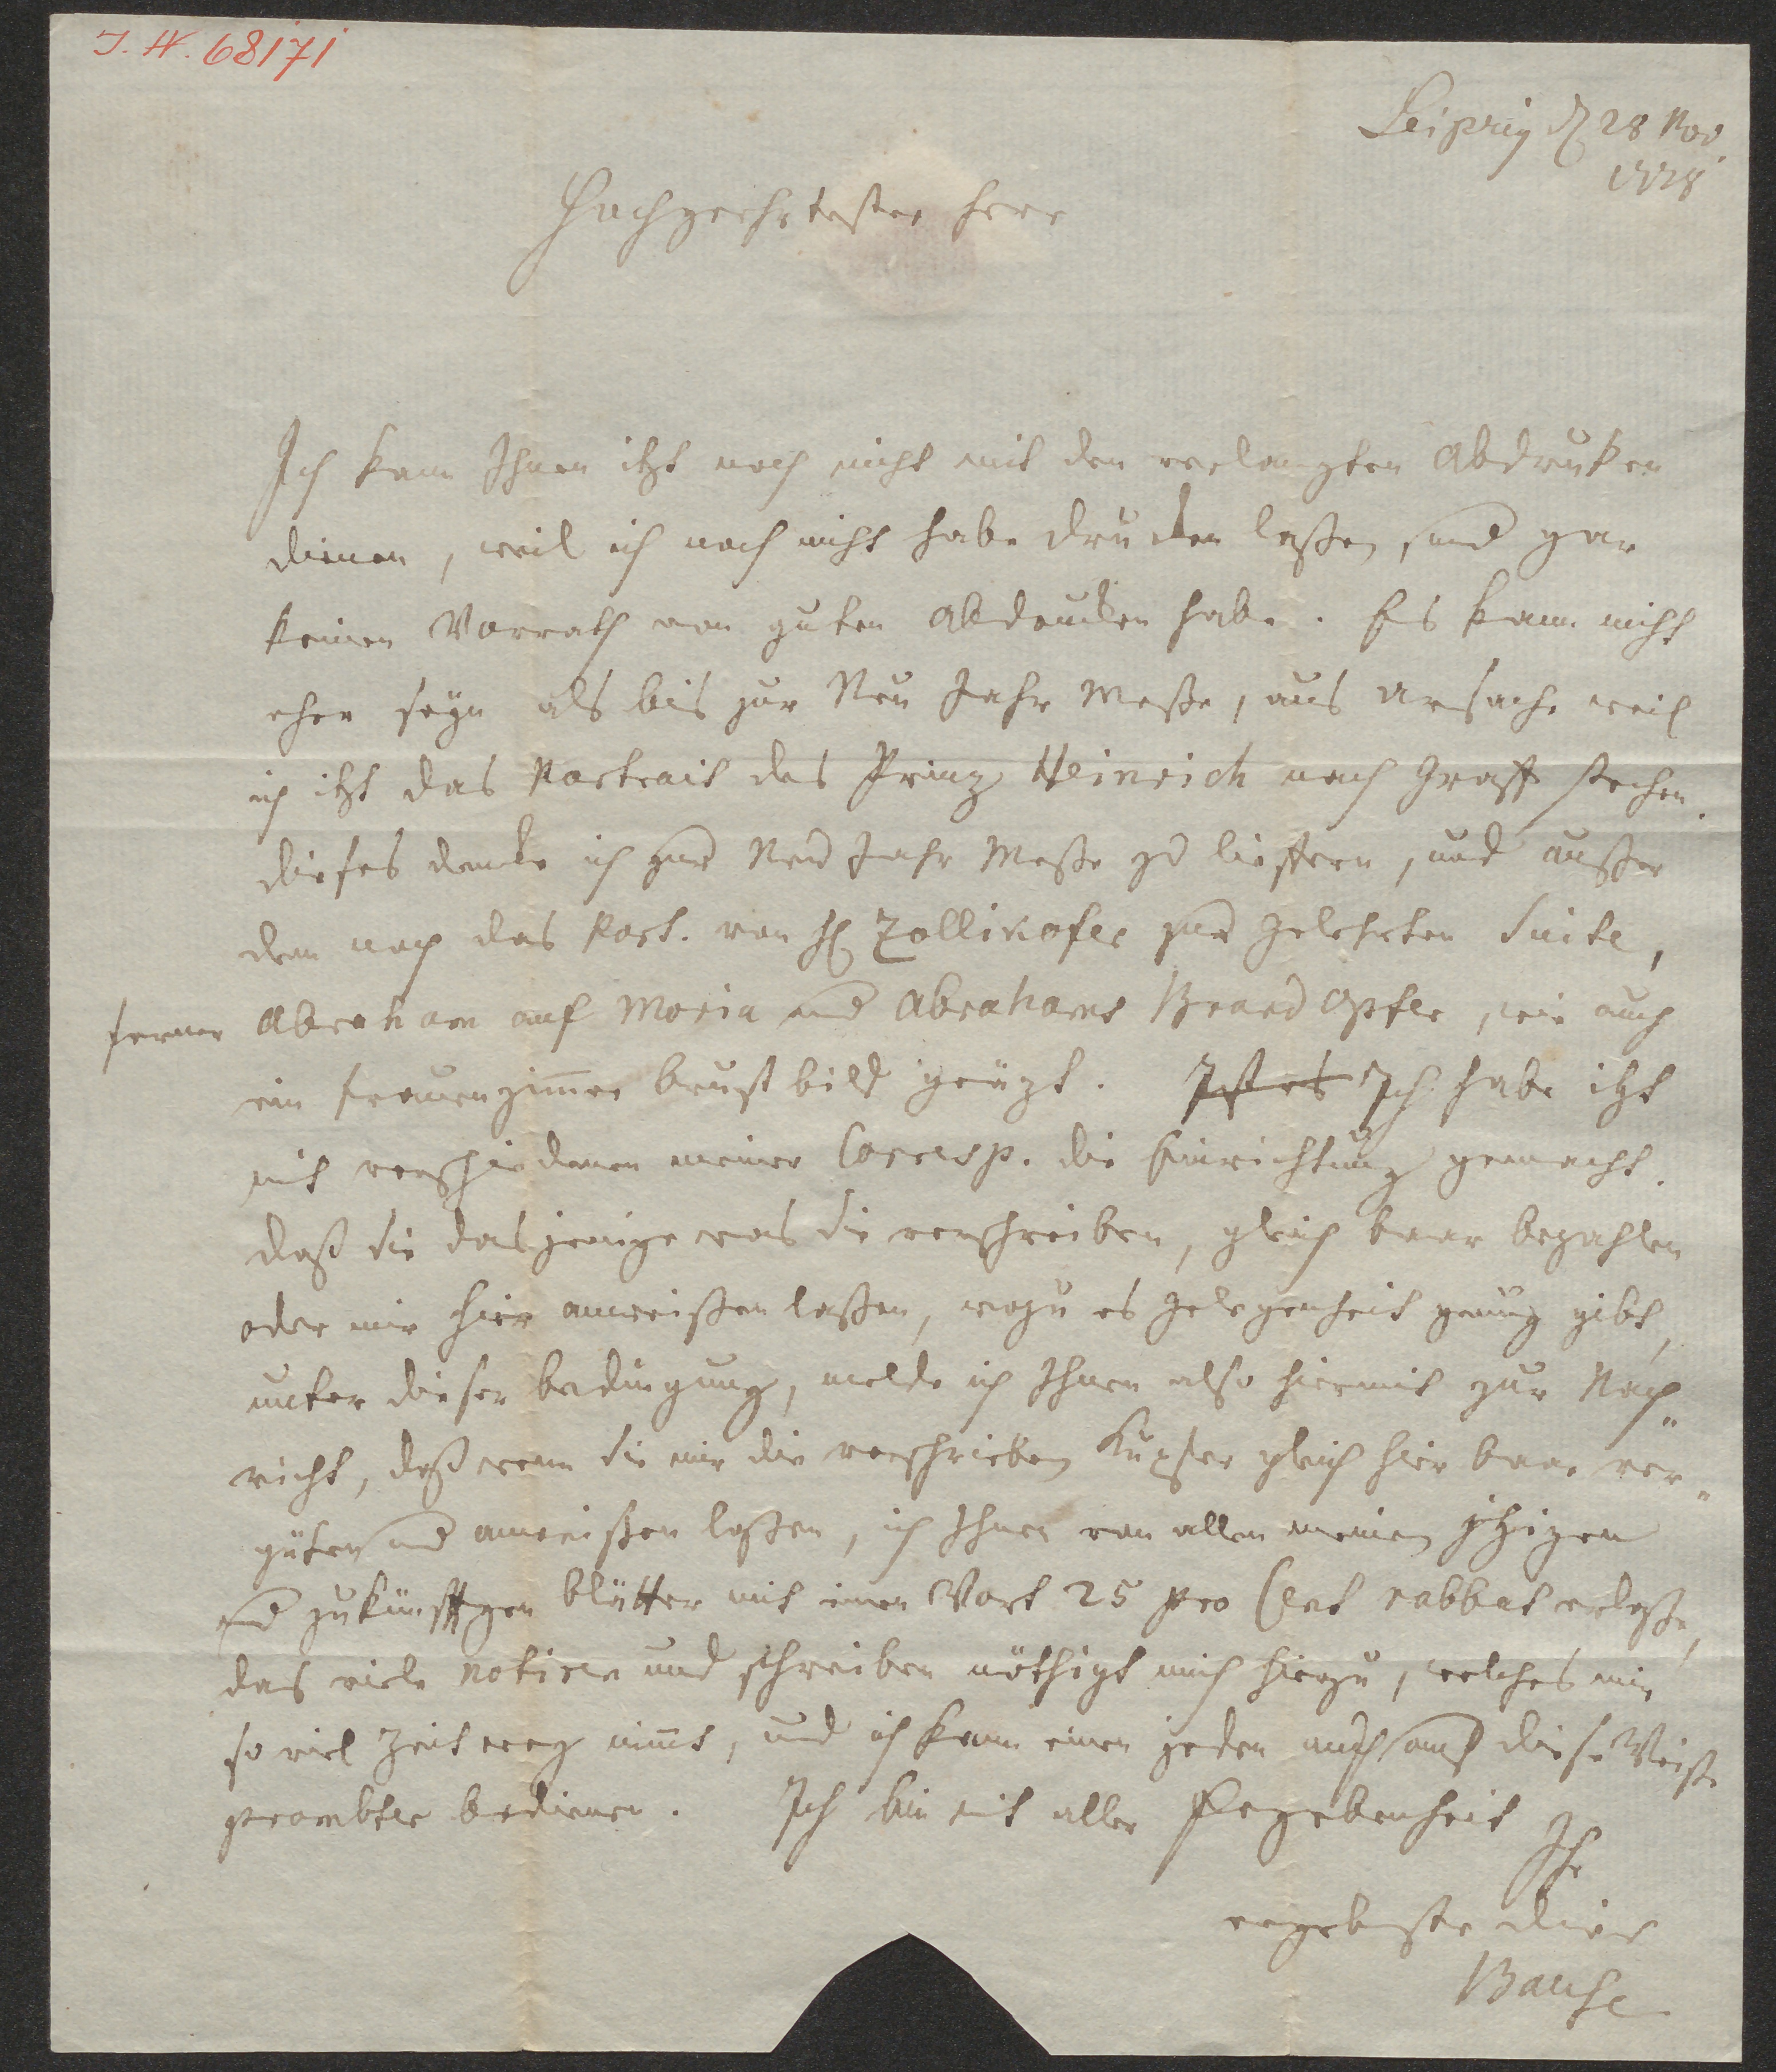 I. N. 68171
Leipzig d 28 Nov.
1778
Hochgeehrtester Herr
Ich kann Ihnen itzt noch nicht mit den verlangten Abdruken
dienen, weil ich noch nicht habe drucken laßen, und gar
keinen Vorrath von guten Abdrucken habe. Es kann nicht
eher seyn als bis zur Neu Jahr Meße, aus Ursache weil
ich itzt das Portrait des Prinz Heinrich nach Graff stechen.
dieses dencke ich zur Neu Jahr Meße zu lieffern, und außer
dem noch das Port. von H Zollikofer zur Gelehrten Suite,
ferner Abraham auf Moria und Abrahams Brand Opfer, wie auch
ein Frauenzimer Brustbild geäzt. Ist es Ich habe itzt
mit verschiedenen meiner Corresp. die Einrichtung gemacht.
daß Sie dasjenige was Sie verschreiben, gleich baar bezahlen
oder mir hier anweißen laßen, wozu es Gelegenheit genug gibt,
unter dieser Bedingung, melde ich Ihnen also hiermit zur Nach„
richt, daß wenn Sie mir die verschrieben Kupfer gleich hier baar ver„
güten und anweißen laßen, ich Ihnen von allen meinen itzigen
und zukünfftgen Blätter mit einen Wort 25 pro Cent rabbat erlaße,
das viele notiren und schreiben nöthigt mich hierzu, welches mir
so viel Zeit weg nimt, und ich kann einen jeden auch auf diese Weiße
prombter bedienen. Ich bin mit aller Ergebenheit
Ihr
ergebenster Dier
Bause